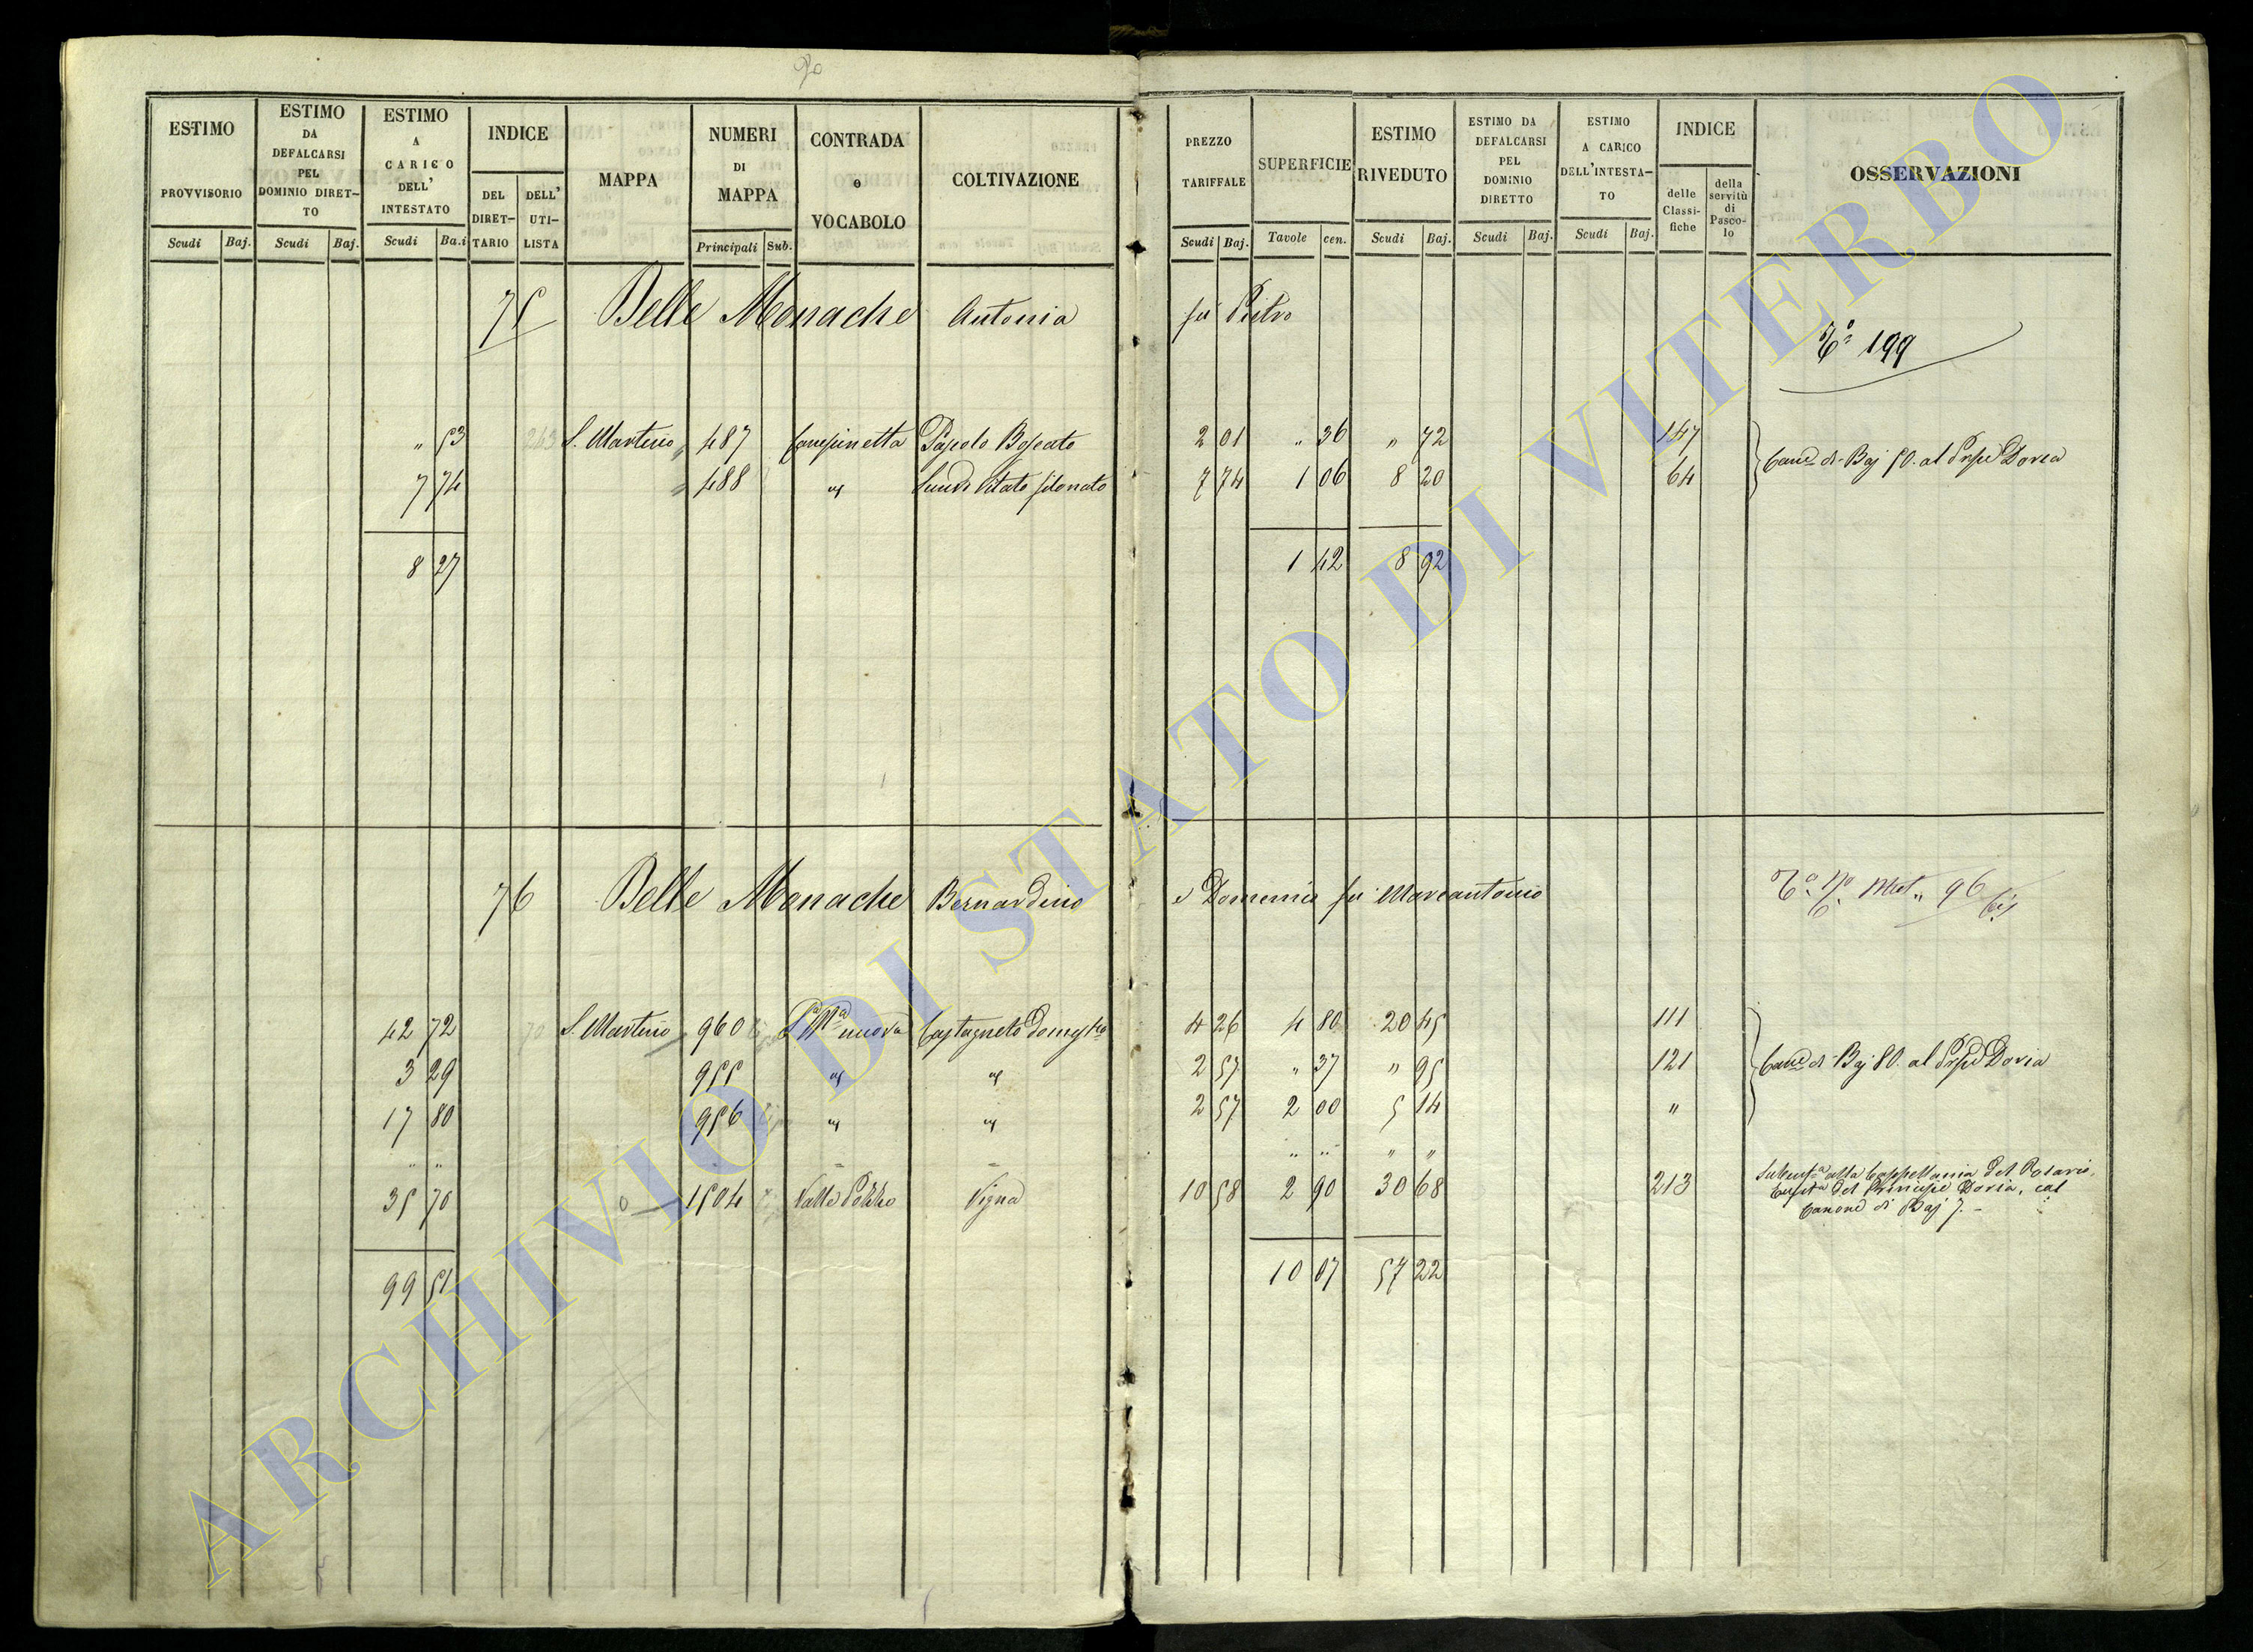 ESTIMO PROVVISORIO
Scudi Baj.
ESTIMO DA DEFALCARSI PEL DOMINIO DIRET-TO
Scudi Baj.
ESTIMO A CARICO DELL' INTESTATO
Scudi Ba.i
INDICE
DEL DIRET-TARIO
DELL' UTI-LISTA
MAPPA
NUMERI DI MAPPA
Principali Sub.
CONTRADA o VOCABOLO
COLTIVAZIONE
PREZZO TARIFFALE
Scudi Baj.
SUPERFICIE
Tavole cen.
ESTIMO RIVEDUTO
Scudi Baj.
ESTIMO DA DEFALCARSI PEL DOMINIO DIRETTO
Scudi Baj.
ESTIMO A CARICO DELL'INTESTA-TO
Scudi Baj.
INDICE
delle Classi-fiche
della servitù di Pasco-lo
OSSERVAZIONI
75 Belle Monache Antonia fu Pietro
199
" 53 243 S. Martino 487 Campinetta Pascolo Boscato 2 01 " 36 " 72 147
7 74 488 " Vitato 7 74 1 06 8 20 64
Cane di Baj 50. al Prpe Doria
8 27 1 42 8 92
76 Belle Monache Bernardino e Domenico fu Marcantonio
96 bis
42 72 70 S. Martino 960 nuova Castagneto domestco 4 26 4 80 20 45 111
3 29 955 " " 2 57 " 37 " 95 121
Cane di Baj 80. al Prpe Doria
17 80 956 " " 2 57 2 00 5 14 "
" " " " " "
35 70 1504 Valle Vigna 10 58 2 90 30 68 213
alla Cappellania del Rosario,
del Principe Doria, col
Canone di Baj 7. -
99 51 10 07 57 22
ARCHIVIO DI STATO DI VITERBO